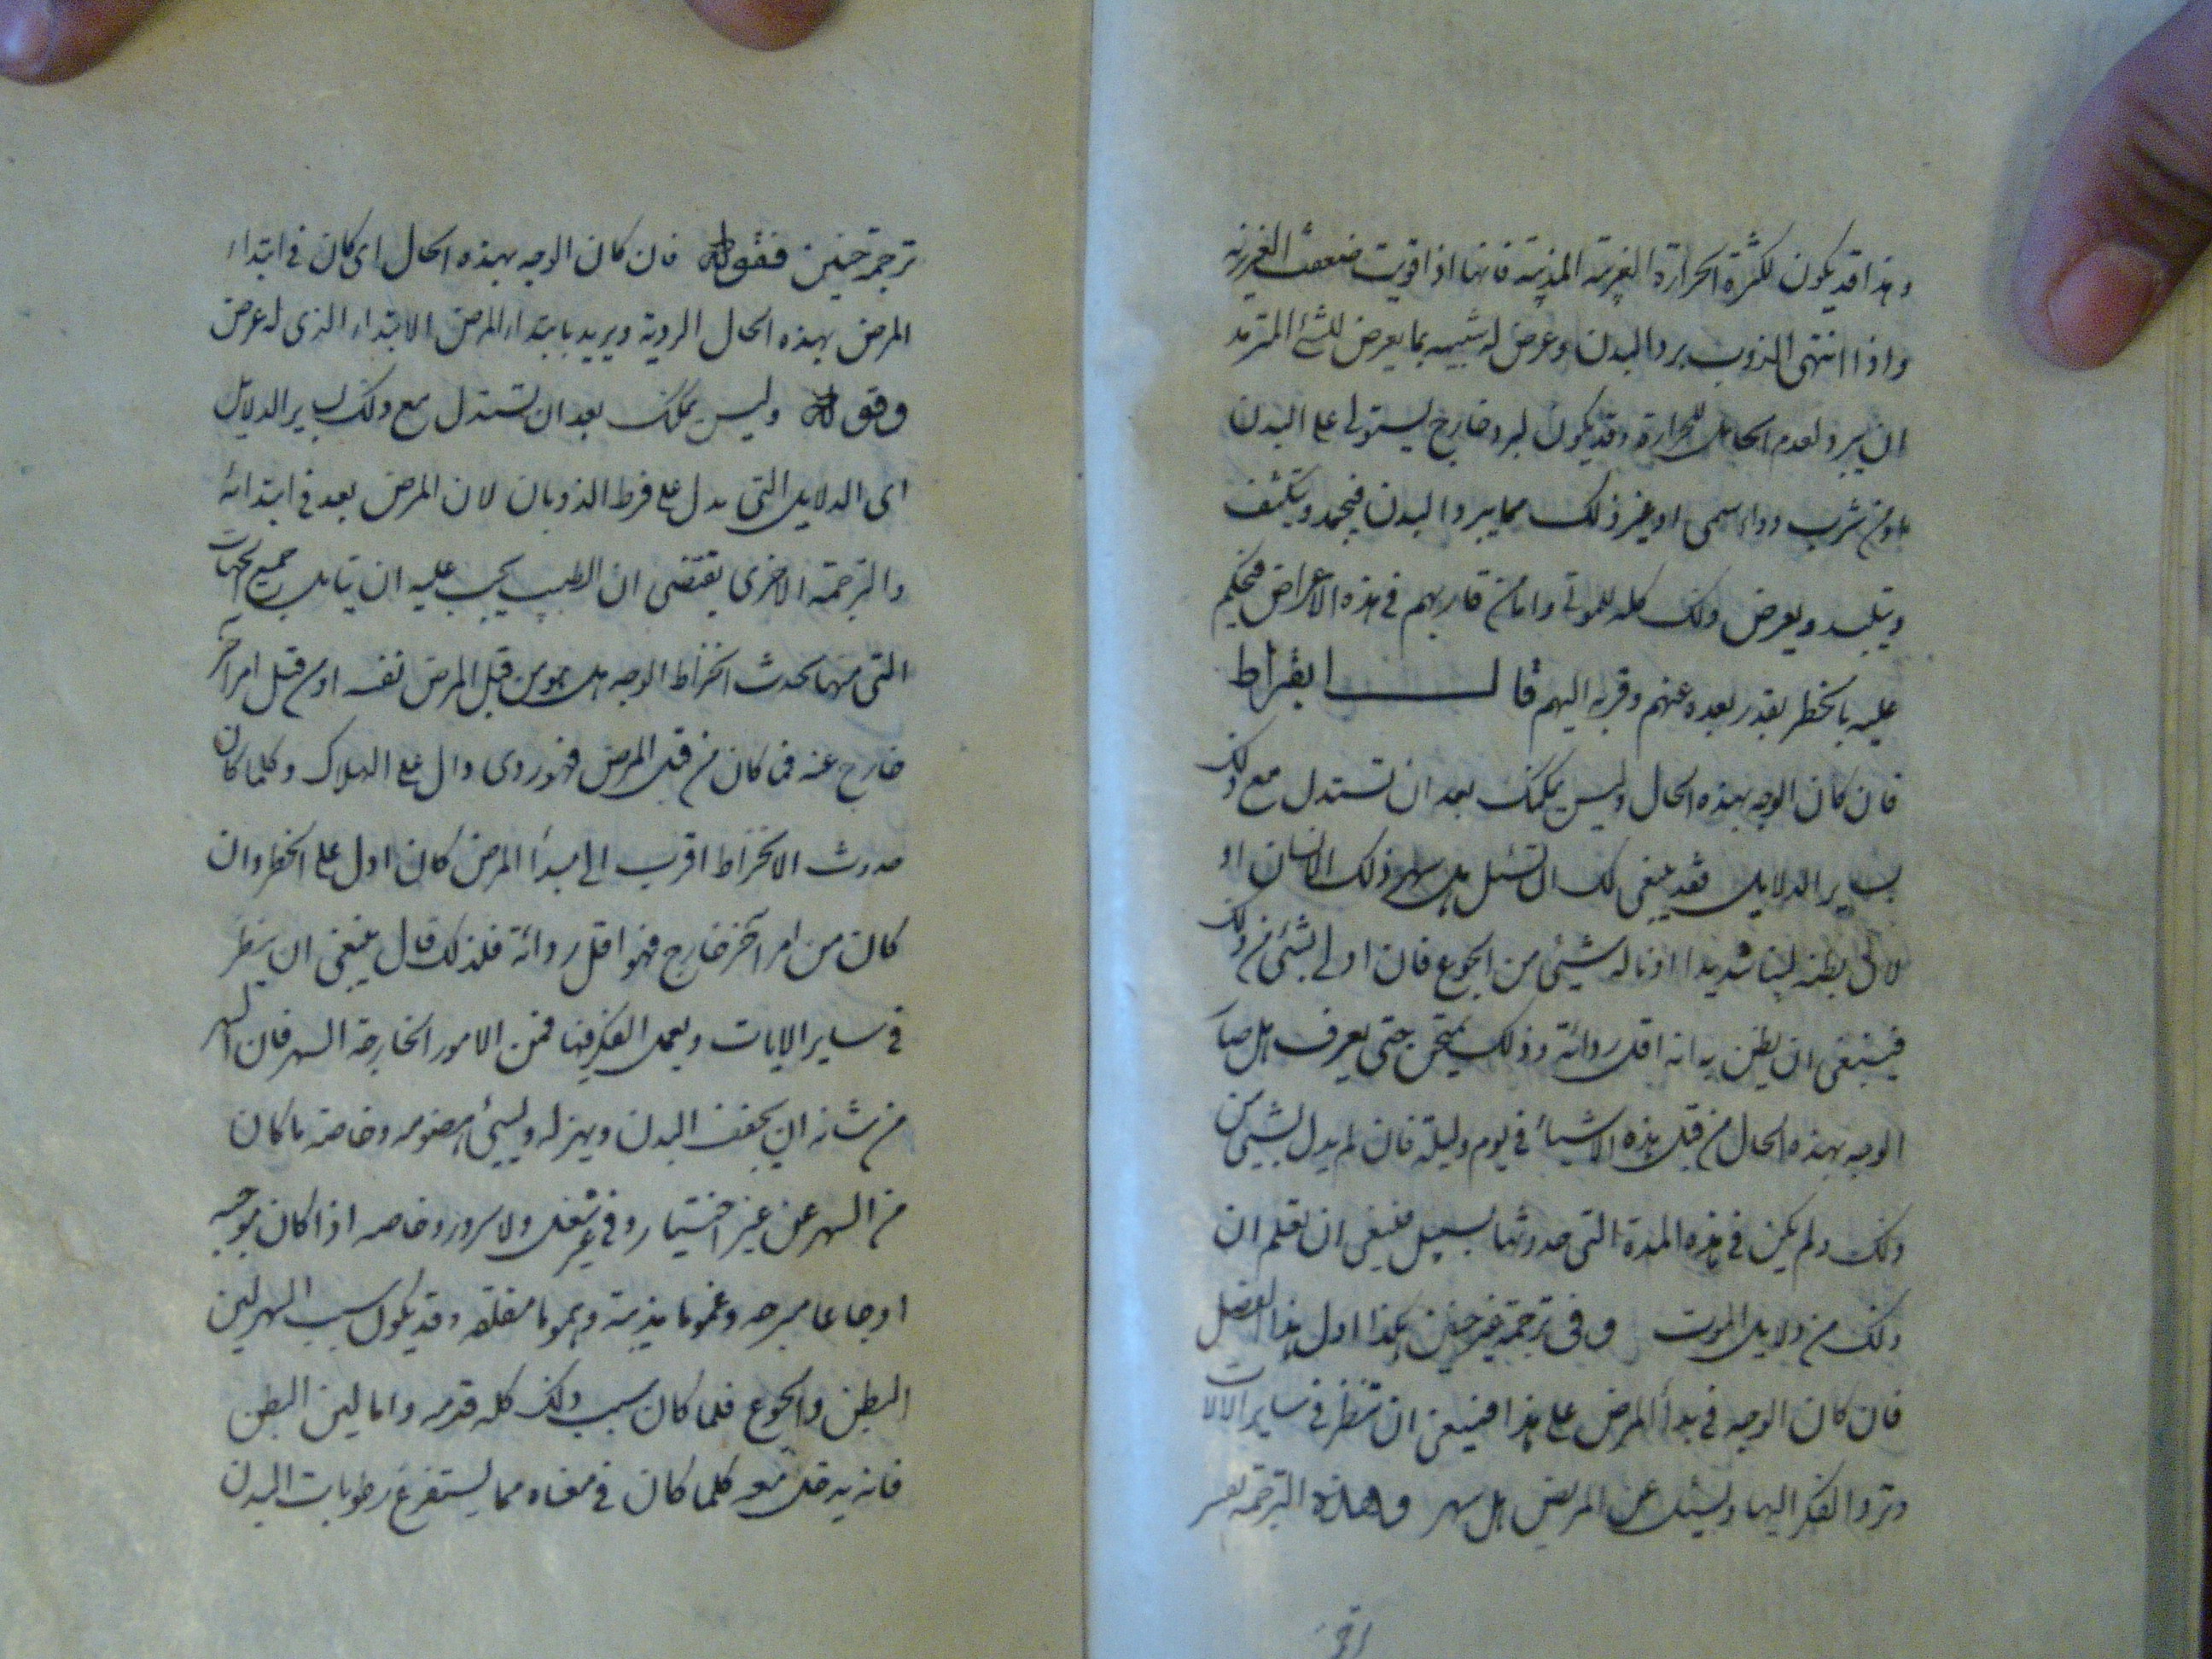 وهذا قد يكون لكثرة الحرارة الغريبة المذيبة فانها اذا قويت ضعفت الغريزية
واذا انتهى الذوب برد البدن وعرض له شبيه بما يعرض للشئ المترمد
ان يبرد لعدم الحامل للحرارة وقد يكون لبرد خارج يستولى على البدن
او من شرب دواء سمى او غير ذلك مما يبرد البدن فيجمد ويتكثف
ويتلبد ويعرض ذلك كله للموتى واما من قاربهم فى هذه الاعراض فيحكم
عليه بالخطر بقدر بعده عنهم وقربه اليهم قال ابقراط
فان كان الوجه بهذه الحال وليس يمكنك بعد ان تستدل مع ذلك
بساير الدلايل فقد ينبغى لك ان تسئل هل سهر ذلك الانسان او
لان بطنه لينا شديدا او ناله شيئ من الجوع فان اولى بشئ من ذلك
فينبغى ان يظن به انه اقل ردائة وذلك يمتحن حتى يعرف هل صار
الوجه بهذه الحال من قبل هذه الاشياء فى يوم وليلة فان لم يدل بشيئ من
ذلك ولم يكن فى هذه المدة التى حدوثها بسبيل فينبغى ان تعلم ان
ذلك من دلايل الموت وفى ترجمة غير حنين هكذا اول هذا الفصل
فان كان الوجه فى بدأ المرض على هذا فينبغى ان تنظر فى ساير الايات
وترد الفكر اليها ويسئل عن المريض هل سهر وهذه الترجمة تفسر
ترجمة حنين فقوله فان كان الوجه بهذه الحال اى كان فى ابتداء
المرض بهذه الحال الردية ويريد بابتداء المرض الابتداء الذى له عرض
وقوله وليس يمكنك بعد ان تستدل مع ذلك بساير الدلايل
اى الدلايل التى يدل على فرط الذوبان لان المرض بعد فى ابتدائه
والترجمة الاخرى يقتضى ان الطبيب يجب عليه ان يتامل جميع الجهات
التى منها يحدث انخراط الوجه هل هو من قبل المرض نفسه او من قبل امر آخر
خارج عنه فما كان من قبل المرض فهو ردى دال على الهلاك وكلما كان
حدوث الانخراط اقرب الى مبدأ المرض كان ادل على الخطر وان
كان من امر آخر خارج فهو اقل ردائة فلذلك قال ينبغى ان ينظر
فى ساير الايات ويعمل الفكر فيها فمن الامور الخارجة السهر فان السهر
من شانه ان يجفف البدن ويهزله ويسيئ هضومه وخاصة ما كان
من السهر عن غير اختيار وفى غير شغل ولا سرور وخاصه اذا كان يوجبه
اوجاعا مبرحه وغموما مذيبة وهموما مقلقه وقد يكون سبب السهر لين
البطن والجوع فلما كان سبب ذلك كله قدمه واما لين البطن
فانه يدخل معه كلما كان فى معناه مما يستفرغ رطوبات البدن